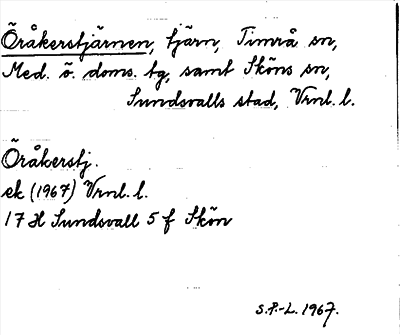 Öråkerstjärnen, tjärn, Timrå sn,
Med. ö. doms. tg, samt Sköns sn,
Sundsvalls stad, Vrnl. l.
Öråkerstj.
ek (1967) Vrnl. l.
17 H Sundsvall 5 f Skön
S.P.-L. 1967.